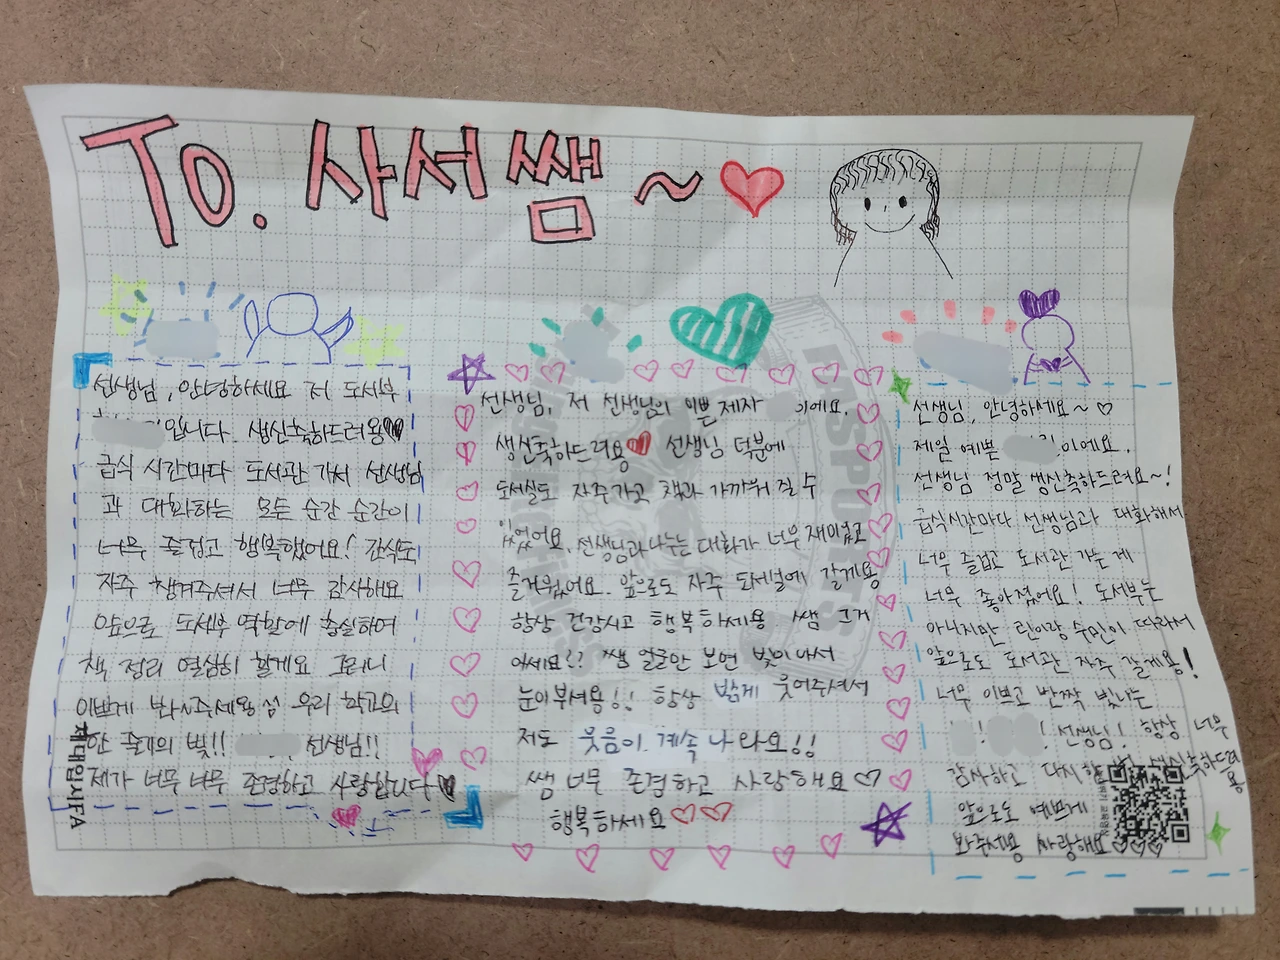 To. 사서쌤 ~
선생님, 안녕하세요 저 도서부
입니다. 생신축하드려용
급식 시간마다 도서관 가서 선생님
과 대화하는 모든 순간 순간이
너무 즐겁고 행복했어요! 간식도
자주 챙겨주셔서 너무 감사해요
앞으로 도서부 역할에 충실하며
책 정리 열심히 할게요 그러니
이쁘게 봐주세용 우리 학교의
한 줄기의 빛!! 선생님!!
제가 너무 너무 존경하고 사랑합니다
선생님, 저 선생님의 이쁜 제자 이에요.
생신축하드려용 선생님 덕분에
도서실도 자주가고 책과 가까워 질 수
있었어요. 선생님과 나누는 대화가 너무 재미있고
즐거웠어요. 앞으로도 자주 도서실에 갈게용
항상 건강하시고 행복하세용 쌤 그거
아세요!? 쌤 얼굴만 보면 빛이 나서
눈이 부셔용!! 항상 밝게 웃어주셔서
저도 웃음이 계속 나와요!!
쌤 너무 존경하고 사랑해요♡
행복하세요♡♡
선생님, 안녕하세요~♡
제일 예쁜 이에요.
선생님 정말 생신축하드려요~!
급식시간마다 선생님과 대화해서
너무 즐겁고 도서관 가는 게
너무 좋아졌어요! 도서부는
아니지만 린이랑 수민이 따라서
앞으로도 도서관 자주 갈게용!
너무 이쁘고 반짝 빛나는
! ! 선생님! 항상 너무
감사하고 다시한번 생신축하드려용
앞으로도 예쁘게
봐주세용 사랑해요♡♡♡
PASSPORTS